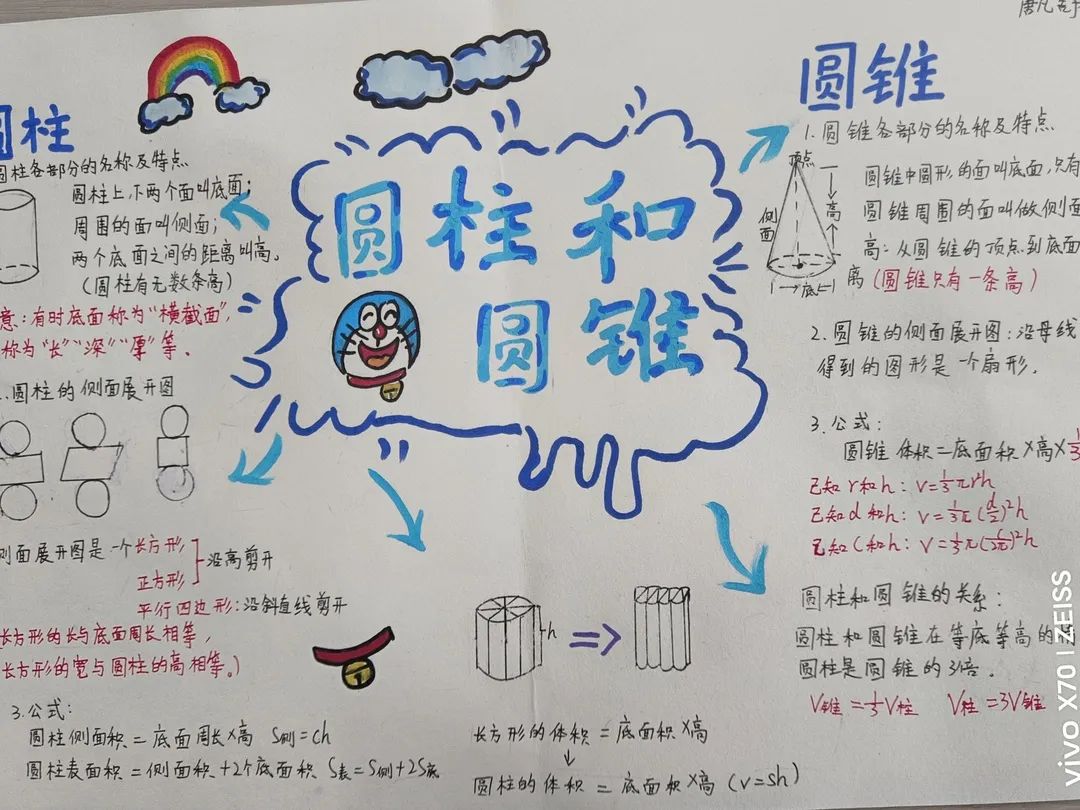 圆柱
圆柱各部分的名称及特点
圆柱上、下两个面叫底面;
周围的面叫侧面;
两个底面之间的距离叫高。
(圆柱有无数条高)
意:有时底面称为"横截面",
称为"长""深""厚"等.
圆柱的侧面展开图
侧面展开图是一个长方形
正方形
沿高剪开
平行四边形:沿斜直线剪开
长方形的长与底面周长相等,
长方形的宽与圆柱的高相等。)
3.公式:
圆柱侧面积=底面周长×高 S侧=ch
圆柱表面积=侧面积+2个底面积 S表=S侧+2S底
圆柱和
圆锥
h
长方形的体积=底面积×高
圆柱的体积=底面积×高(v=sh)
圆锥
1.圆锥各部分的名称及特点
顶点
侧面
高
底
圆锥中圆形的面叫底面,只有
圆锥周围的面叫做侧面
高:从圆锥的顶点到底面
离(圆锥只有一条高)
2.圆锥的侧面展开图:沿母线
得到的图形是一个扇形.
3.公式:
圆锥体积=底面积×高×1/3
已知r和h:V=1/3πr²h
已知d和h:V=1/3π(d/2)²h
已知C和h:V=1/3π(C/2π)²h
圆柱和圆锥的关系:
圆柱和圆锥在等底等高的情
圆柱是圆锥的3倍.
V锥=1/3V柱 V柱=3V锥
vivo X70 | ZEISS